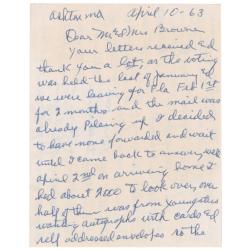 Ashton Md April 10-63
Dear Mr & Mrs Browne
Your letters received &
thank you a lot, as the voting
was held the last of January &
we were leaving for Fla Feb 1st
for 2 months and the mail was
already Pileing up I decided
to have none forwarded and wait
until I came back to answer, well
April 2nd on arriving home I
had about 2000 to look over, over
half of them was from youngsters
wanting autographs with cards &
self addressed envelopes so the